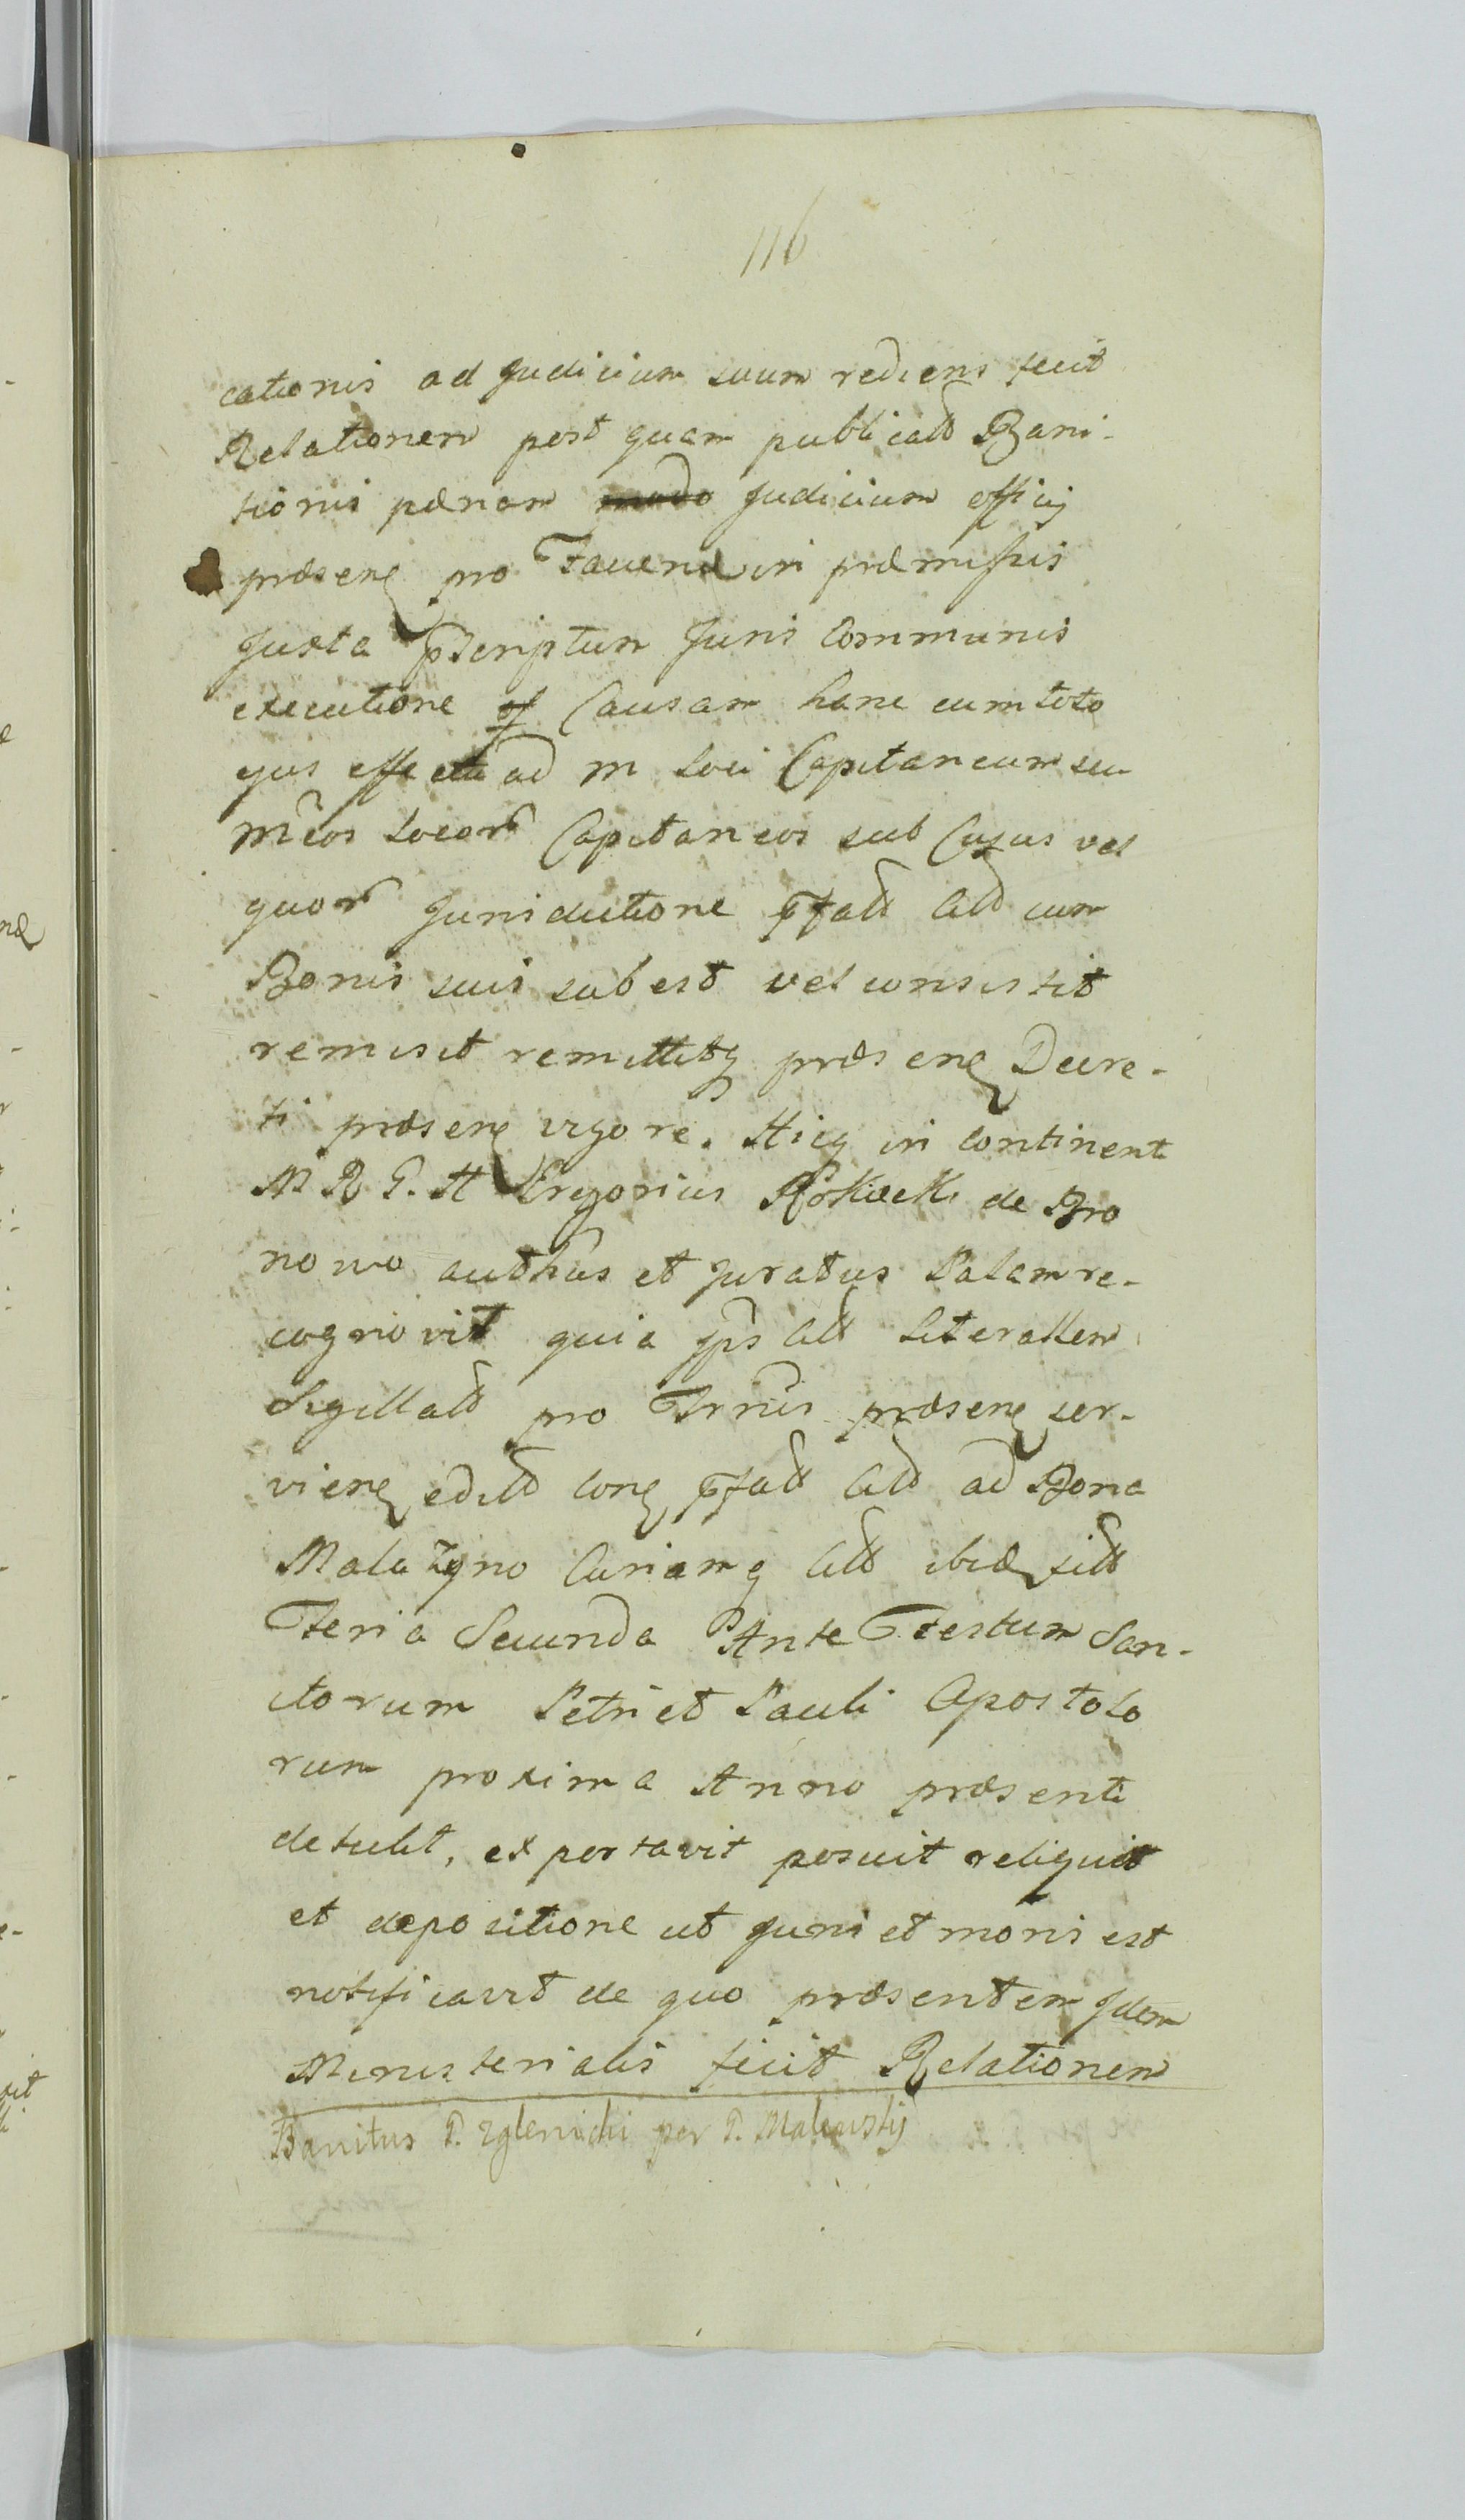 116
cationis ad Judicium suum rediens fecit
Relationem post quam publicatã Bani-
tionis pænam Judicium officij
præsenꝫ pro Faciend in præmissis
Juxta pscriptum Juris Communis
executione Causam hanc cum toto
ejus effectu ad M loci Capitaneum seu
Mcos locorũ Capitaneos sub Cujus vel
quorũ Jurisdictione pfatũ Cittũ cum
Bonis suis subest vel consistit
remisit remittitqꝫ præsenꝫ Decre-
ti præsenꝫ vigore. Hicqꝫ in continenti
M R G. H Gregorius de Bro
nowo authũs et Juratus Palam re-
cognovit quia ips Citt literallem
Sigillatã pro Trnis præsenꝫ ser-
vienꝫ editã conꝫ pfatũ Cittũ ad Bona
Malużyno Curiamqꝫ Citti ibidꝫ sitã
Feria Secunda Ante Festum San-
ctorum Petri et Pauli Apostolo
rum proxima Anno præsenti
detulit, exportavit posuit reliquit
et depositione ut Juris et moris est
notificavit de quo præsentem Idem
Ministerialis fecit Relationem
Banitus P. Zglenicki per P.